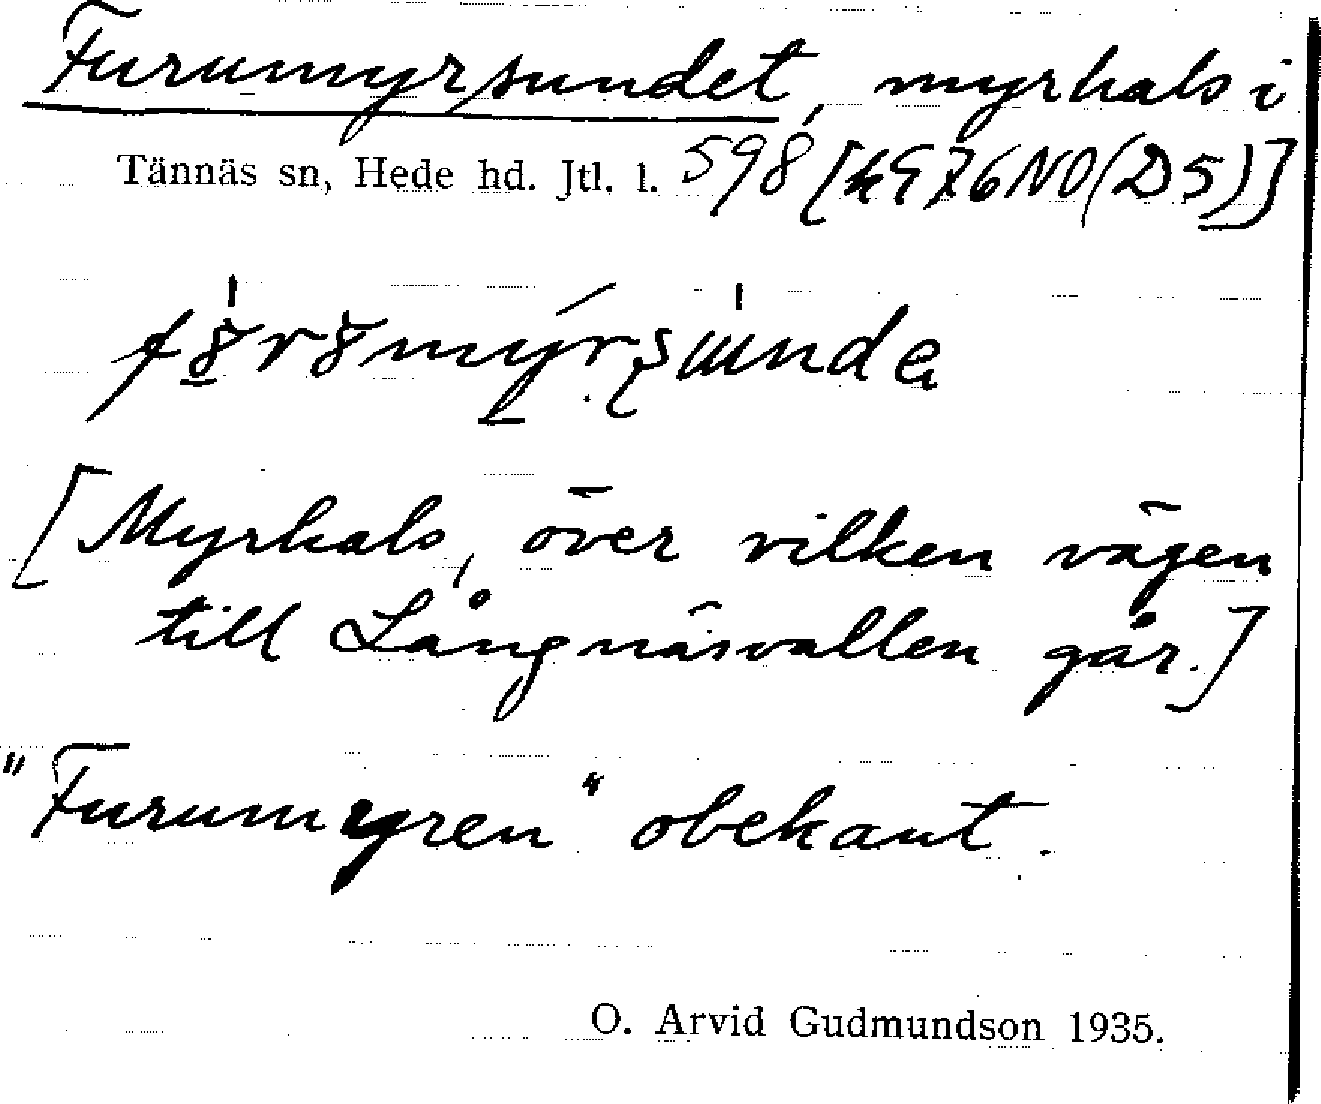 Furumyrsundet, myrhals i
Tännäs sn, Hede hd. Jtl. l. 598
[Myrhals, över vilken vägen
till Långnäsvallen går.]
"Furumyren" obekant.
O. Arvid Gudmundson 1935.